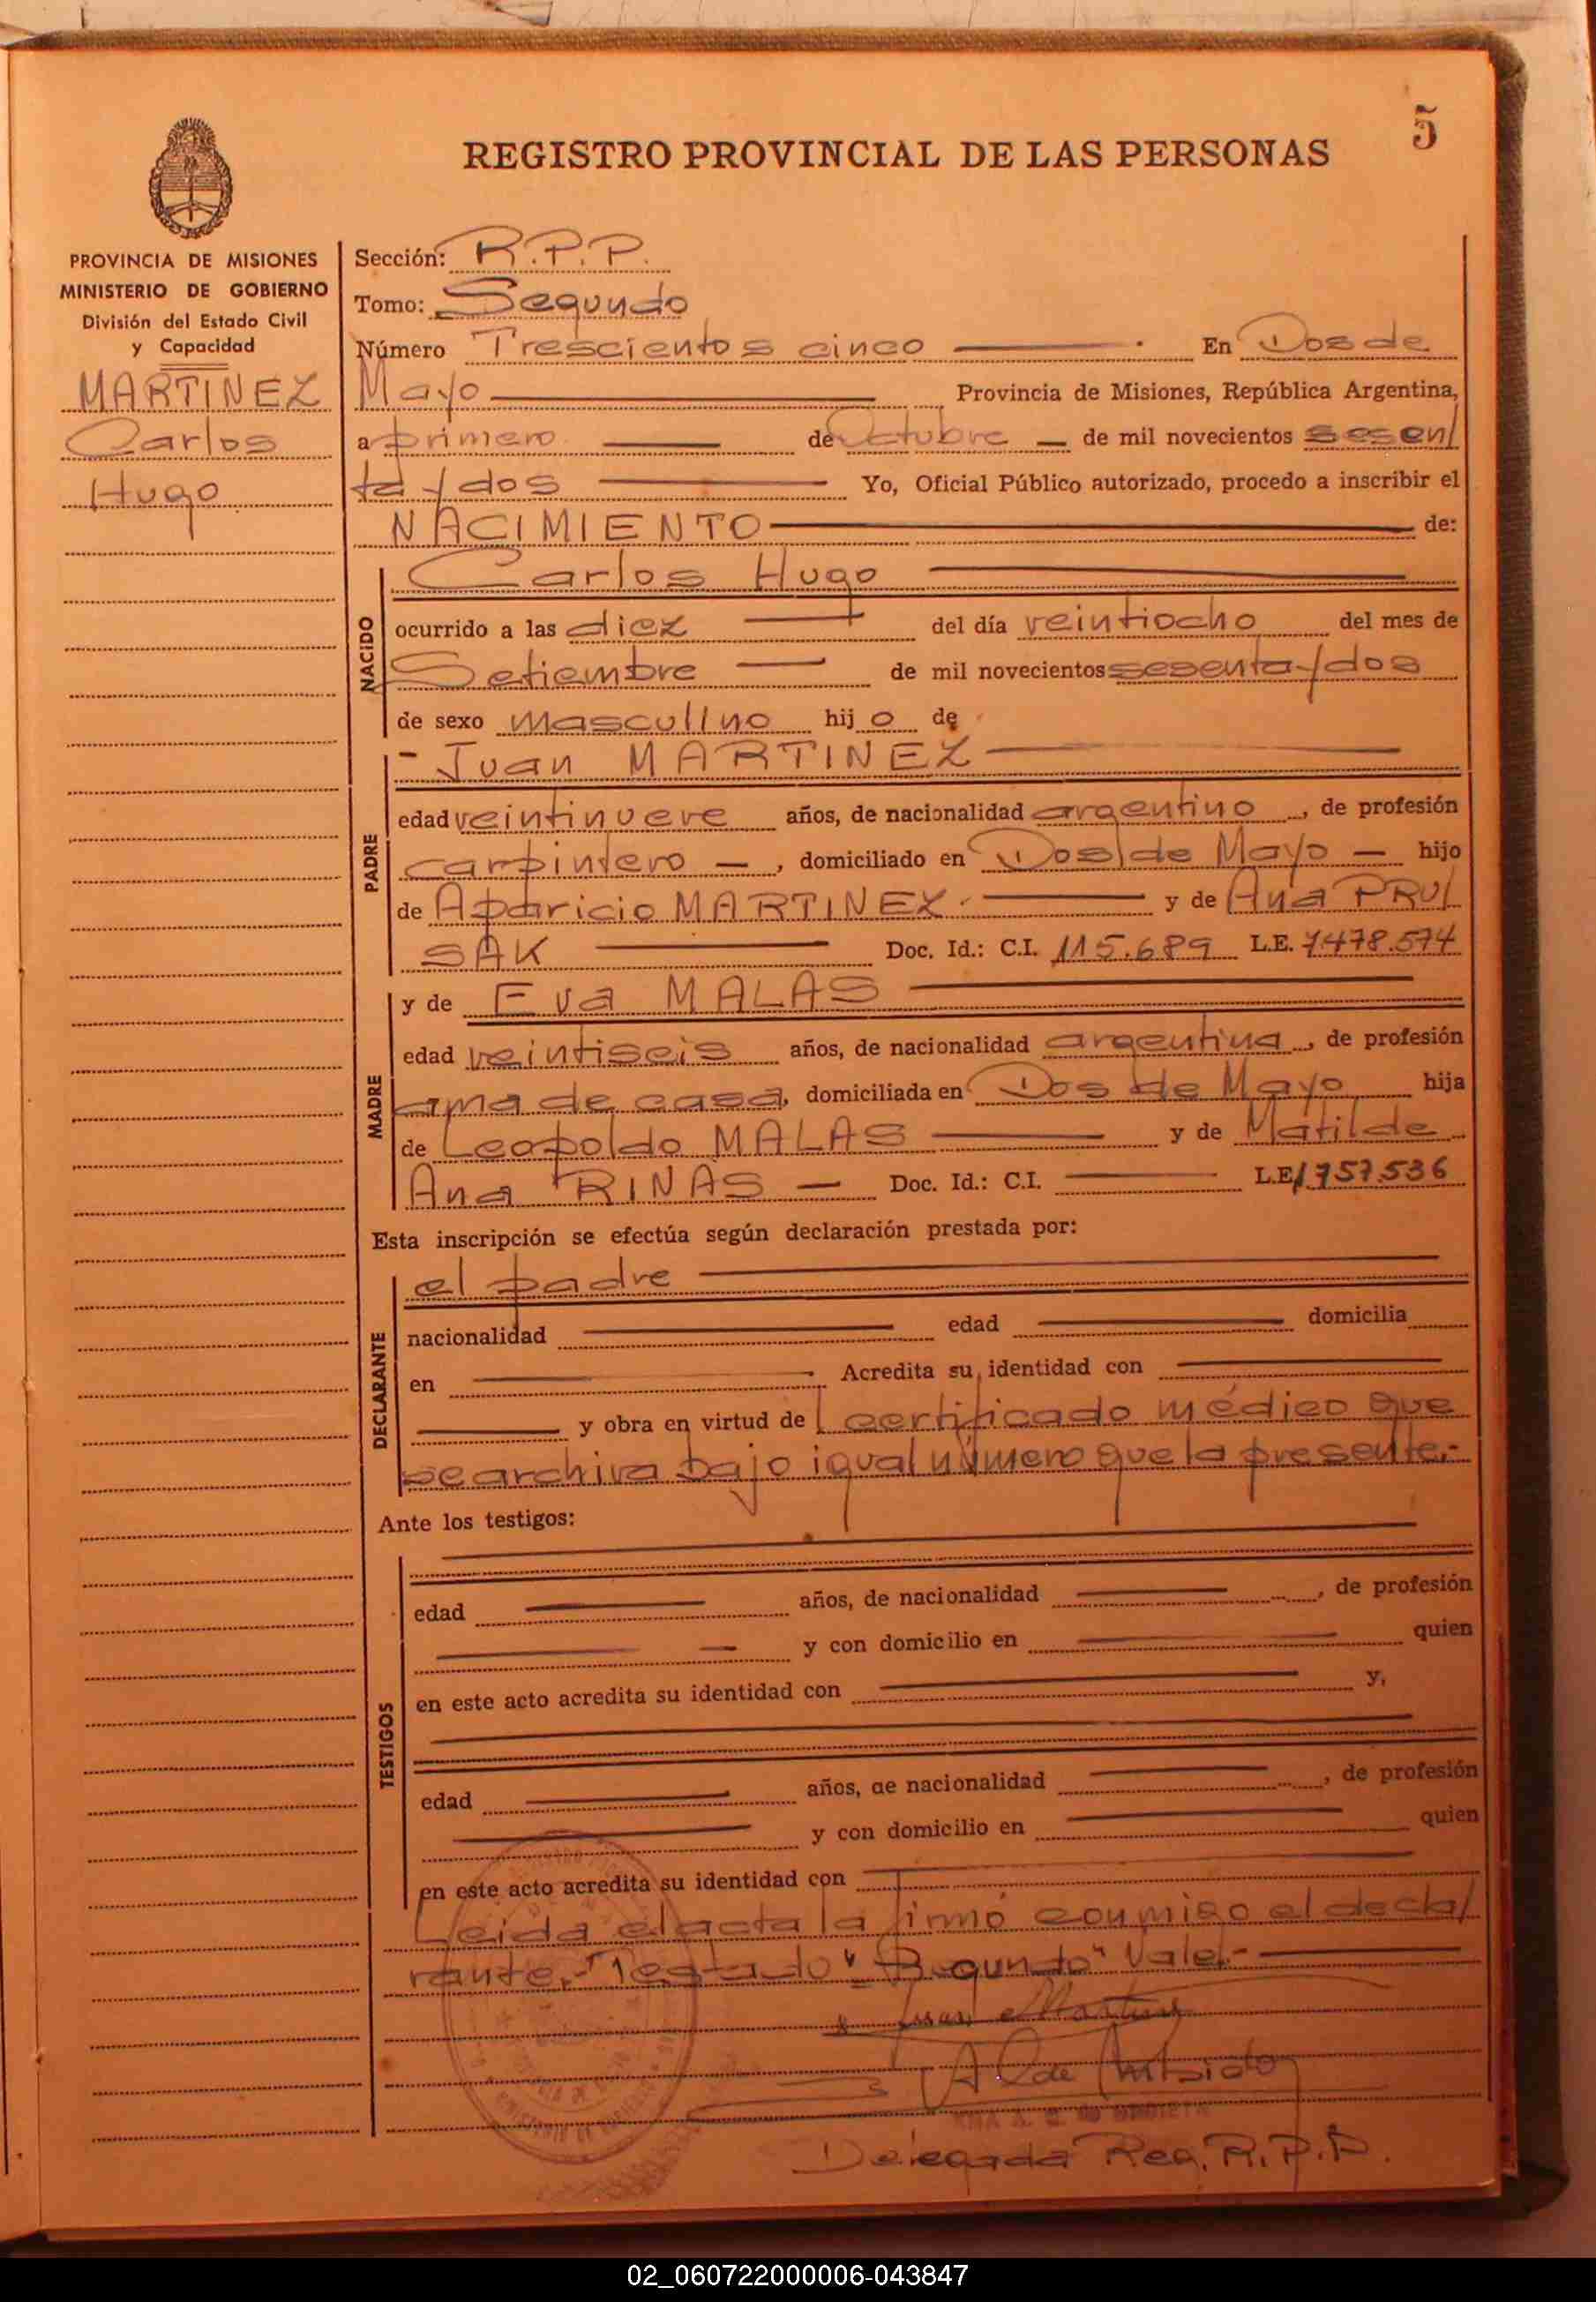 5
REGISTRO PROVINCIAL DE LAS PERSONAS
PROVINCIA DE MISIONES
MINISTERIO DE GOBIERNO
División del Estado Civil
y Capacidad
MARTINEZ
Carlos
Hugo
Sección: R.P.P.
Tomo: Segundo
Número Trescientos cinco En Dos de
Mayo Provincia de Misiones, República Argentina,
a primero de Octubre de mil novecientos sesen
ta y dos Yo, Oficial Público autorizado, procedo a inscribir el
NACIMIENTO de:
NACIDO
Carlos Hugo
ocurrido a las diez del día veintiocho del mes de
Setiembre de mil novecientos sesenta y dos
de sexo masculino hijo de
PADRE
- Juan MARTINEZ
edad veintinueve años, de nacionalidad argentino, de profesión
carpintero, domiciliado en Dos de Mayo hijo
de Aparicio MARTINEZ y de Ana PRU
SAK Doc. Id.: C.I. 115.689 L.E. 7.478.574
MADRE
y de Eva MALAS
edad veintiseis años, de nacionalidad argentina, de profesión
ama de casa, domiciliada en Dos de Mayo hija
de Leopoldo MALAS y de Matilde
Ana RINAS Doc. Id.: C.I. L.E. 1.757.536
Esta inscripción se efectúa según declaración prestada por:
DECLARANTE
el padre
nacionalidad edad domicilia
en Acredita su identidad con
y obra en virtud del certificado médico que
se archiva bajo igual número que la presente.-
Ante los testigos:
TESTIGOS
edad años, de nacionalidad , de profesión
y con domicilio en quien
en este acto acredita su identidad con y,
edad años, de nacionalidad , de profesión
y con domicilio en quien
en este acto acredita su identidad con
Leida el acta la firmó conmigo el decla
rante.- Testado " Segundo" Vale.-
Juan Martinez
Delegada Reg. R.P.P.
02_060722000006-043847